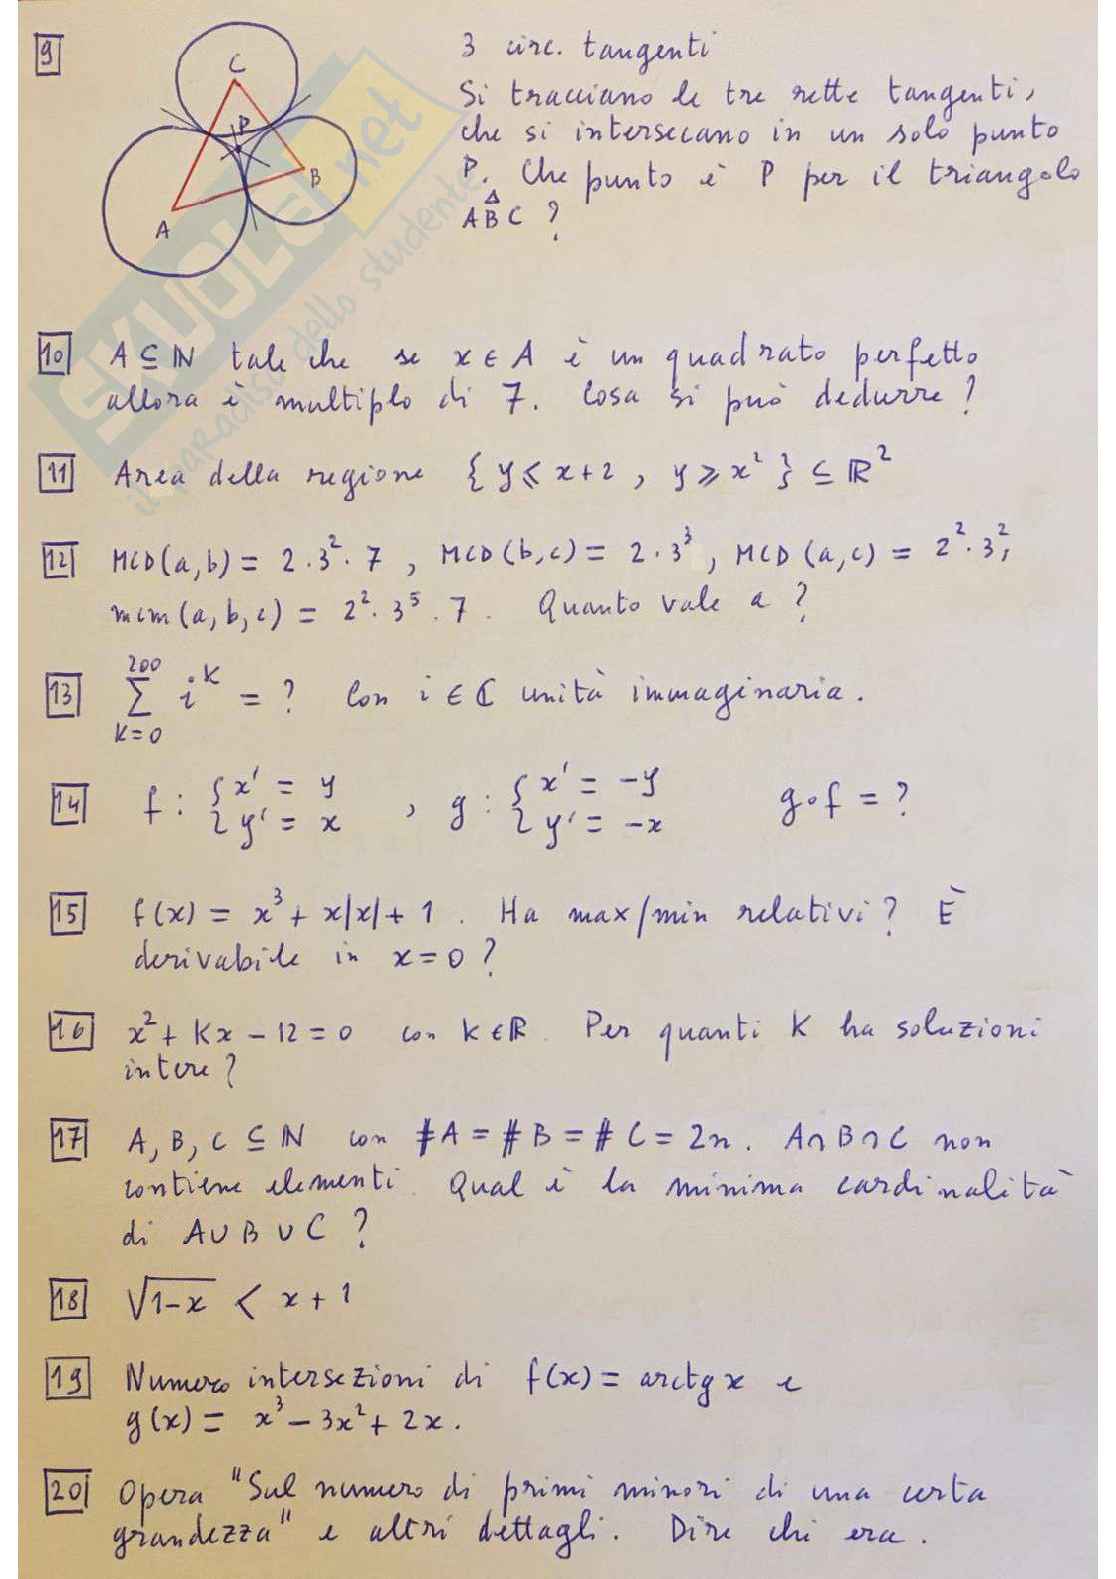 9
C
P
B
A
3 circ. tangenti
Si tracciano le tre rette tangenti,
che si intersecano in un solo punto
P. Che punto è P per il triangolo
AB̂C ?
SKUOLA.net
il paradiso dello studente
10 A ⊆ ℕ tale che se x ∈ A è un quadrato perfetto
allora è multiplo di 7. Cosa si può dedurre ?
11 Area della regione { y ⩽ x+2 , y ⩾ x² } ⊆ ℝ²
12 MCD(a,b) = 2·3²·7 , MCD(b,c) = 2·3³ , MCD(a,c) = 2²·3²,
mcm(a,b,c) = 2²·3⁵·7. Quanto vale a ?
13 ∑_{K=0}^{200} i^K = ? Con i ∈ ℂ unità immaginaria.
14 f : { x' = y , g : { x' = -y g∘f = ?
y' = x y' = -x
15 f(x) = x³ + x|x| + 1 . Ha max/min relativi ? È
derivabile in x = 0 ?
16 x² + Kx - 12 = 0 con K ∈ ℝ. Per quanti K ha soluzioni
intere ?
17 A, B, C ⊆ ℕ con #A = #B = #C = 2n. A∩B∩C non
contiene elementi. Qual è la minima cardinalità
di A∪B∪C ?
18 √(1-x) < x + 1
19 Numero intersezioni di f(x) = arctg x e
g(x) = x³ - 3x² + 2x.
20 Opera "Sul numero di primi minori di una certa
grandezza" e altri dettagli. Dire chi era.